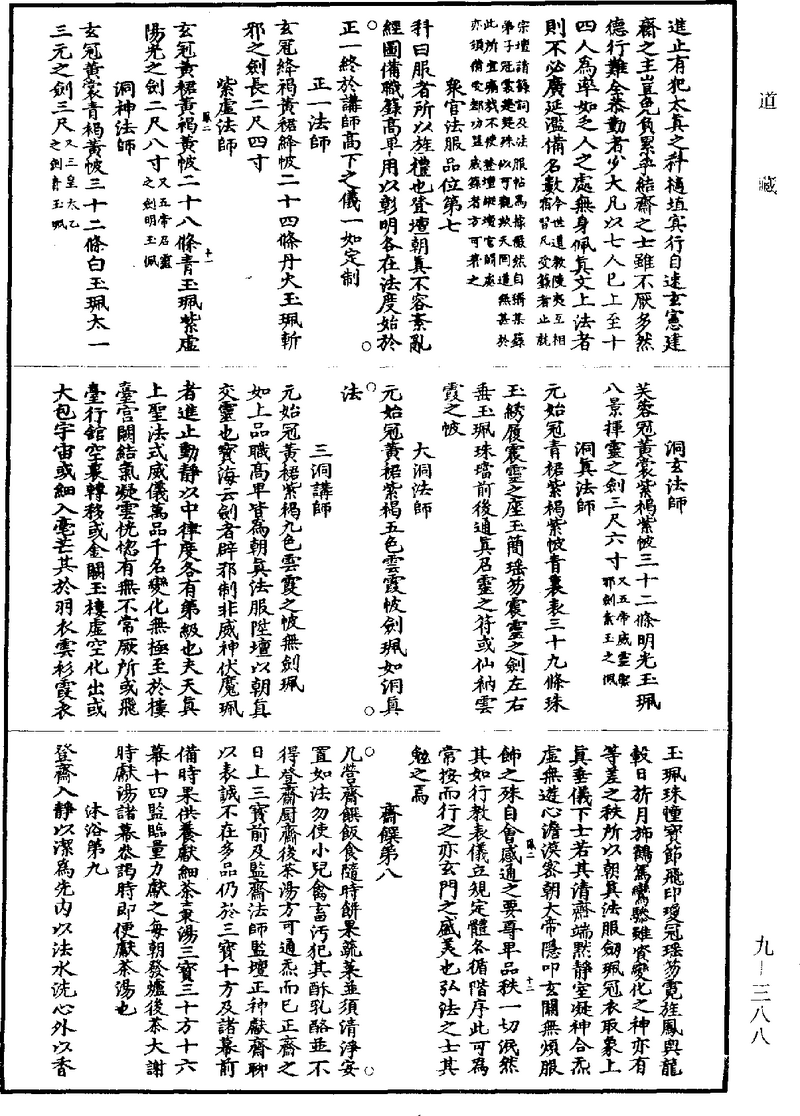 道藏
九—三八八
進止有犯太真之科檛埴寅行自速玄憲建
齋之主豈免負累乎結齋之士雖不厭多然
德行難全恭勤者少大凡以七人已上至十
四人為率如乏人之處無身佩真文上法者
則不必廣延濫備名數今世道教陵夷互相
宗壇請籙詞及法服帖為據儼然自稱某籙
弟子冠裳楚楚殊以可觀欺天罔道無甚於
此所宜痛戒不使登壇縱壇官闕處
亦須備受都功盟威籙者方可昇之
衆官法服品位第七
科曰服者所以旌禮也登壇朝真不容紊亂
經圖備職籙高卑用以彰明各在法度始於
正一終於講師高下之儀一如定制
正一法師
玄冠絳褐黃裙締帔二十四條丹火玉珮斬
邪之劍長二尺四寸
紫虛法師
玄冠黃裙黃褐黃帔二十八條青玉珮紫虛
陽光之劍二尺八寸又五帝召靈
之劍明玉佩
洞神法師
玄冠黃裳青褐黃帔三十二條白玉珮太一
三元之劍三尺又三皇太乙
之劍青玉珮
洞玄法師
芙蓉冠黃裳紫褐紫帔三十二條明光玉珮
八景揮靈之劍三尺六寸又五帝威靈
邪劍素玉之佩
洞真法師
元始冠青裙紫褐紫帔青裏表三十九條珠
玉綉履震靈之座玉簡瑶笏震靈之劍左右
垂玉珮珠璫前後通真召靈之符或仙衲雲
霞之帔
大洞法師
元始冠黃裙紫褐五色雲霞帔劍珮如洞真
法
三洞講師
元始冠黃裙紫褐九色雲霞之帔無劍珮
如上品職高卑皆為朝真法服陞壇以朝真
交靈也寶海云劍者辟邪制非威神伏魔珮
者進止動静以中律度各有第級也夫天真
上聖法式威儀萬品千名變化無極至於樓
臺宮闕結氣凝雲恍惚有無不常厥所或飛
臺行館空裏轉移或金闕玉樓虛空化出或
大包宇宙或細入毫芒其於羽衣雲衫霞衣
玉珮珠幢寶節飛印瓊冠瑶笏霓旌鳳輿龍
轂日旂月斾鶴駕鸞驂雖資變化之神亦有
等差之秩所以朝真法服劍珮冠衣取象上
真垂儀下士若其清齋端黙静室凝神合炁
虛無遊心澹漠密朝大帝隱叩玄關無煩服
飾之殊自會感通之要尊卑品秩一切泯然
其如行教表儀立規定體各循階序此可為
常按而行之亦玄門之盛美也弘法之士其
勉之焉
齋饌第八
凡營齋饌飯食隨時餅果蔬菜並須清淨安
置如法勿使小兒禽畜汚犯其酥乳酪並不
得登齋厨齋後茶湯方可通炁而已正齋之
日上三寶前及監齋法師監壇正神獻齋聊
以表誠不在多品仍於三寶十方及諸幕前
備時果供養獻細茶棗湯三寶三十方十六
幕十四監臨量力獻之每朝發爐後茶大謝
時獻湯諸幕恭謁時即便獻茶湯也
沐浴第九
登齋入静以潔為先内以法水洗心外以香